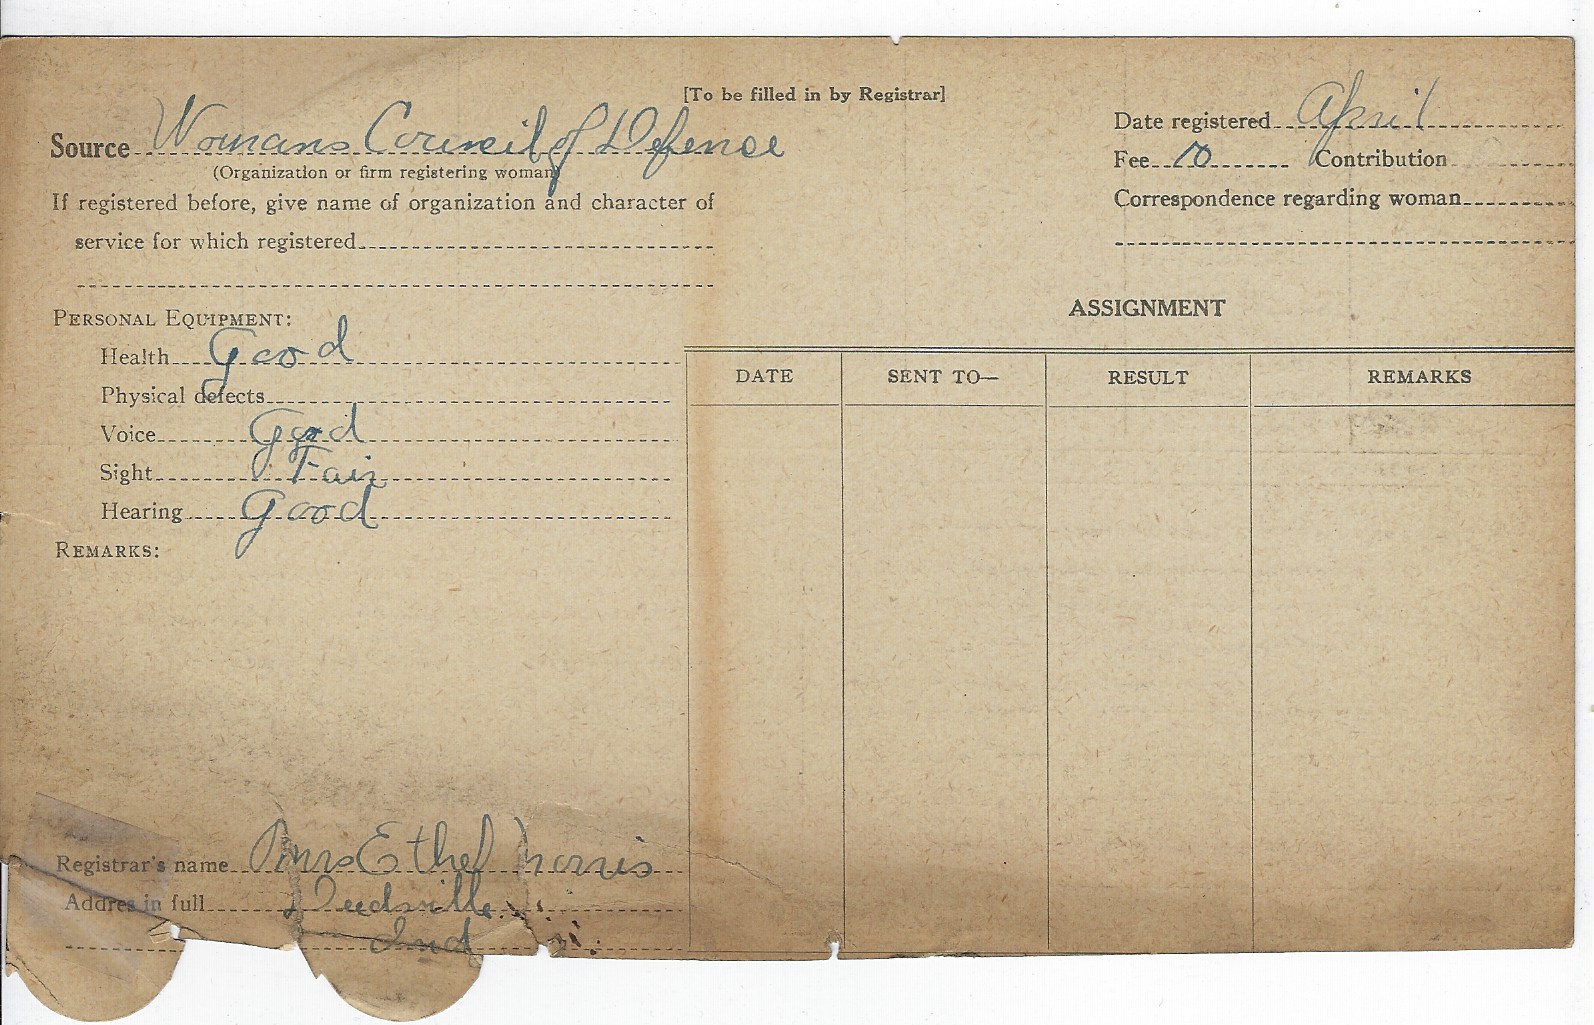 [To be filled in by Registrar]
Source Womans Council of Defence
(Organization or firm registering woman)
If registered before, give name of organization and character of
service for which registered
Date registered April
Fee 10 Contribution
Correspondence regarding woman
PERSONAL EQUIPMENT:
Health Good
Physical defects
Voice Good
Sight Fair
Hearing Good
REMARKS:
ASSIGNMENT
DATE SENT TO— RESULT REMARKS
Registrar's name Mrs Ethel Morris
Addres in full Deedsville
Ind